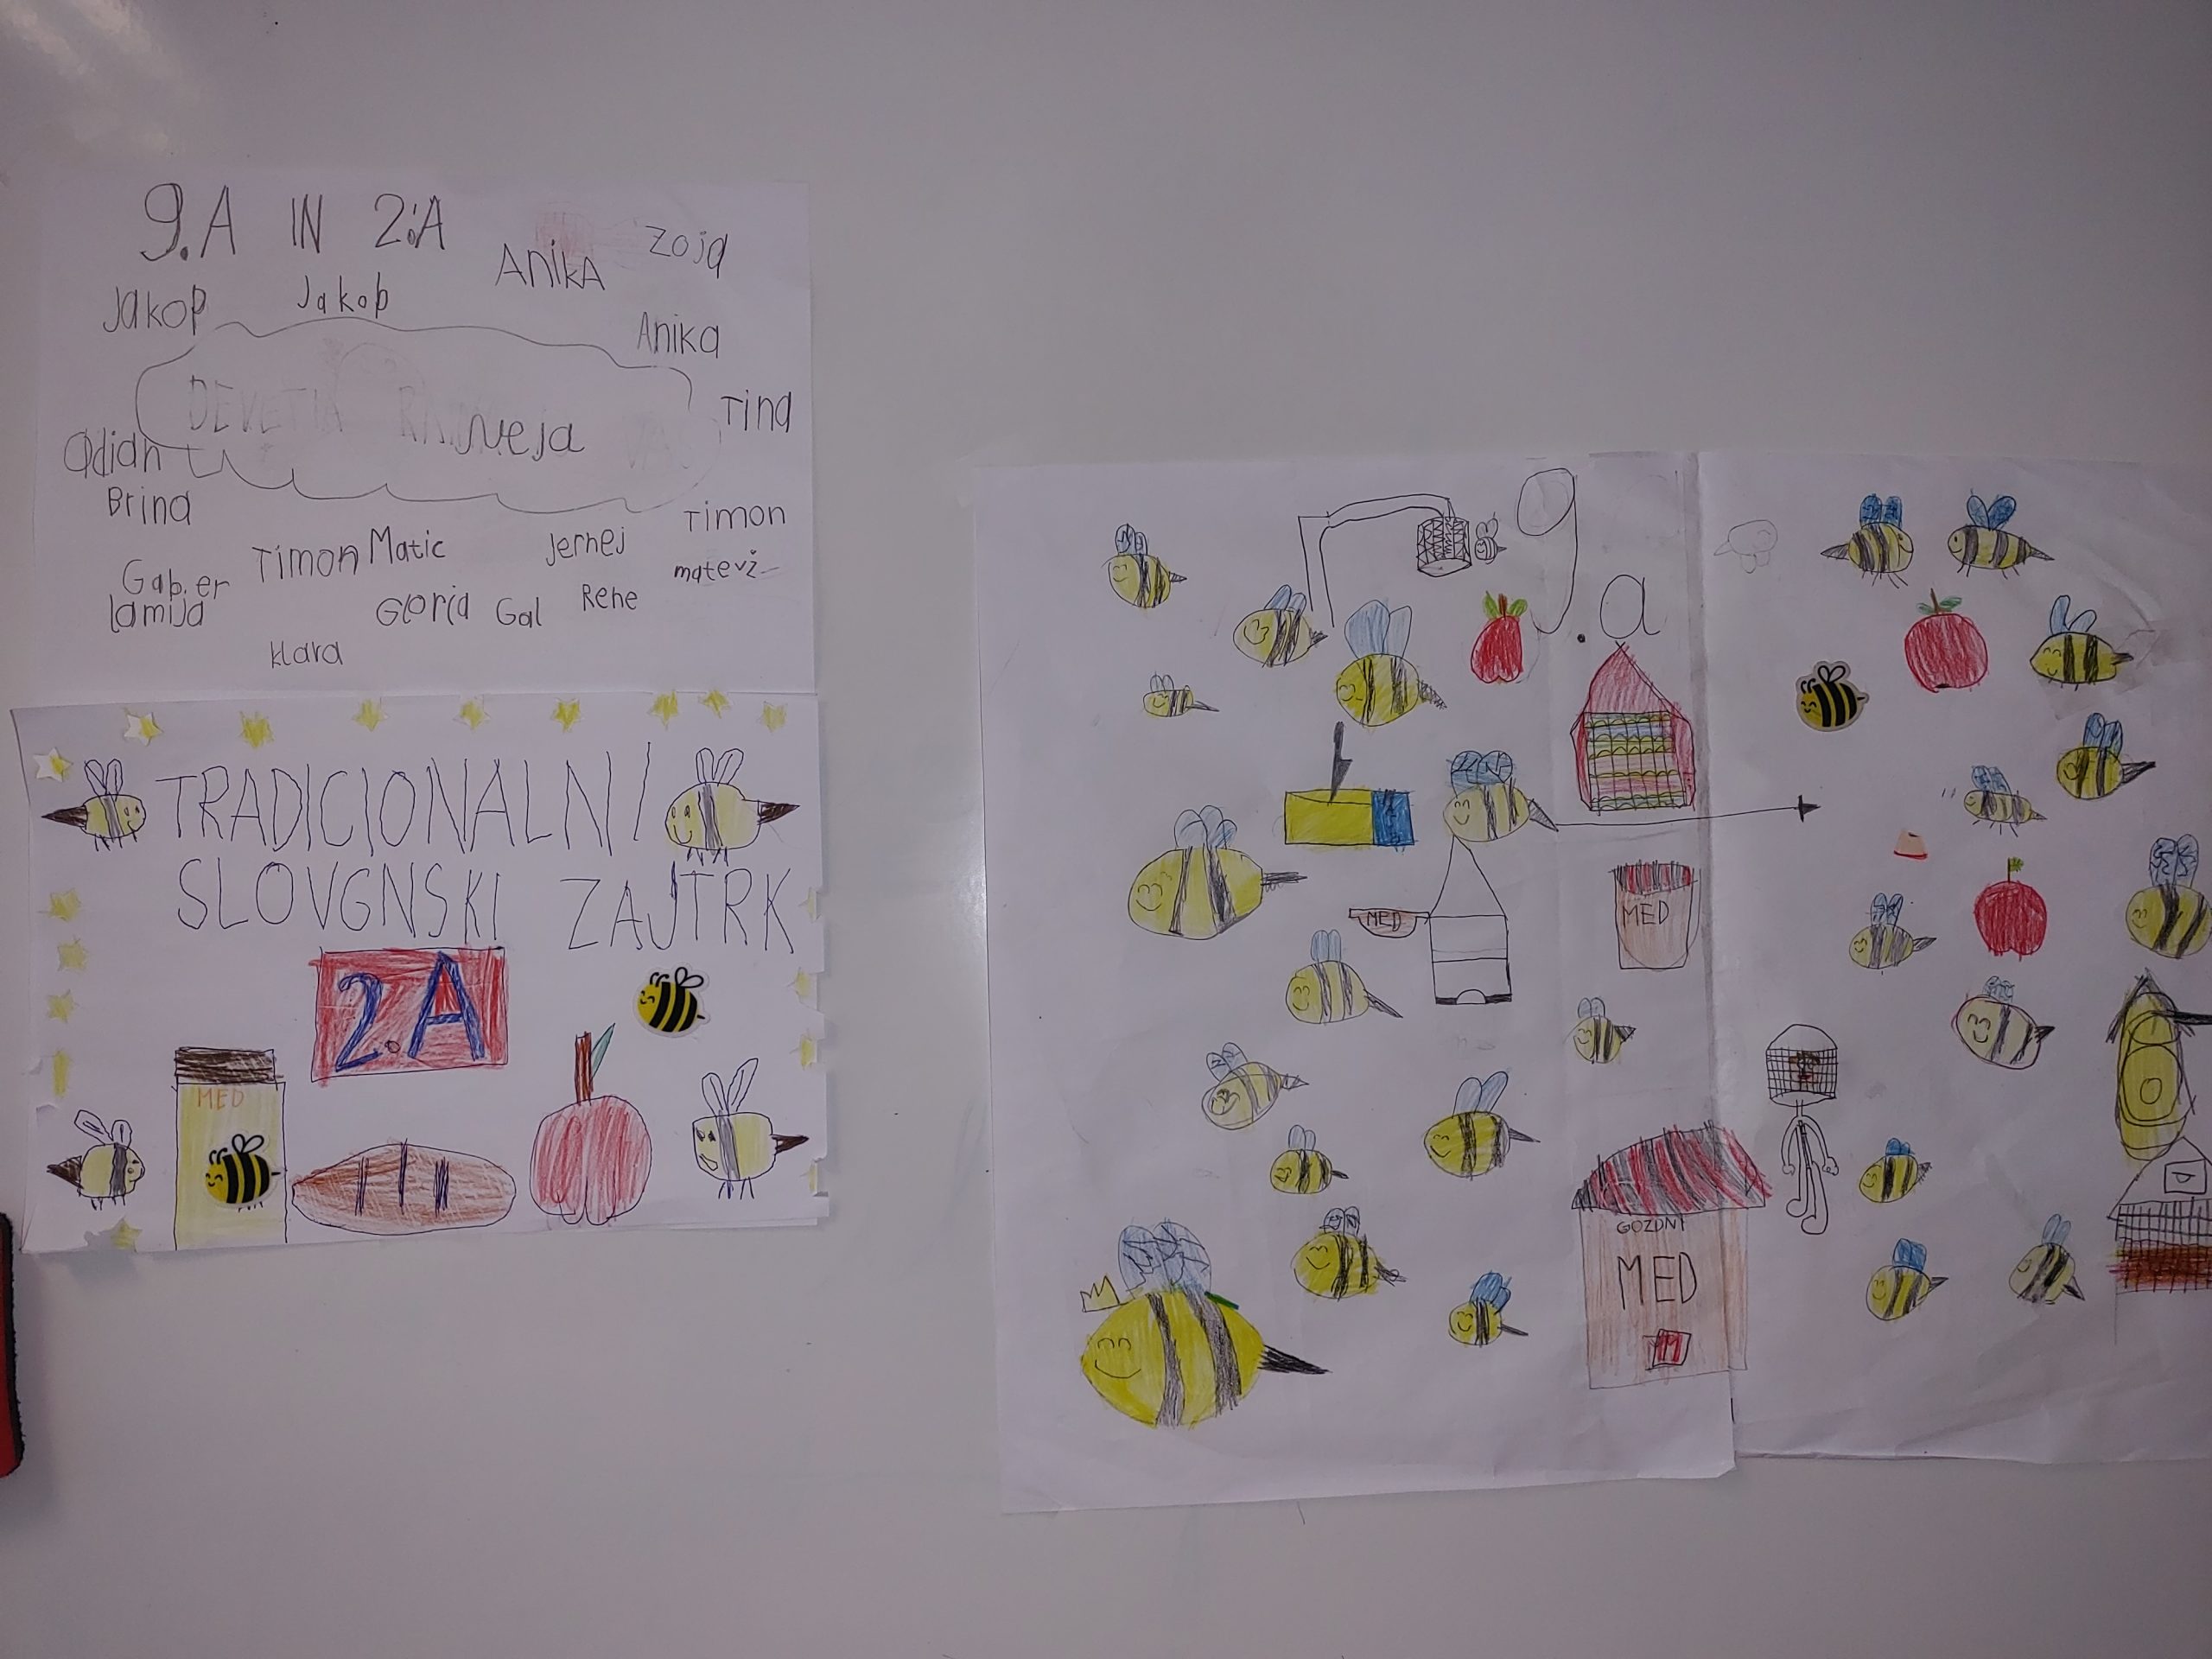 9.A IN 2.A
Jakop Jakob Anika Zoja
Anika
Neja
Tina
Adian
Brina
Timon Matic Jernej Timon
matevž
Gaber
lamija
Gloria Gal Rene
klara
TRADICIONALNI
SLOVENSKI ZAJTRK
2.A
MED
9.a
MED
MED
GOZDNI
MED
M